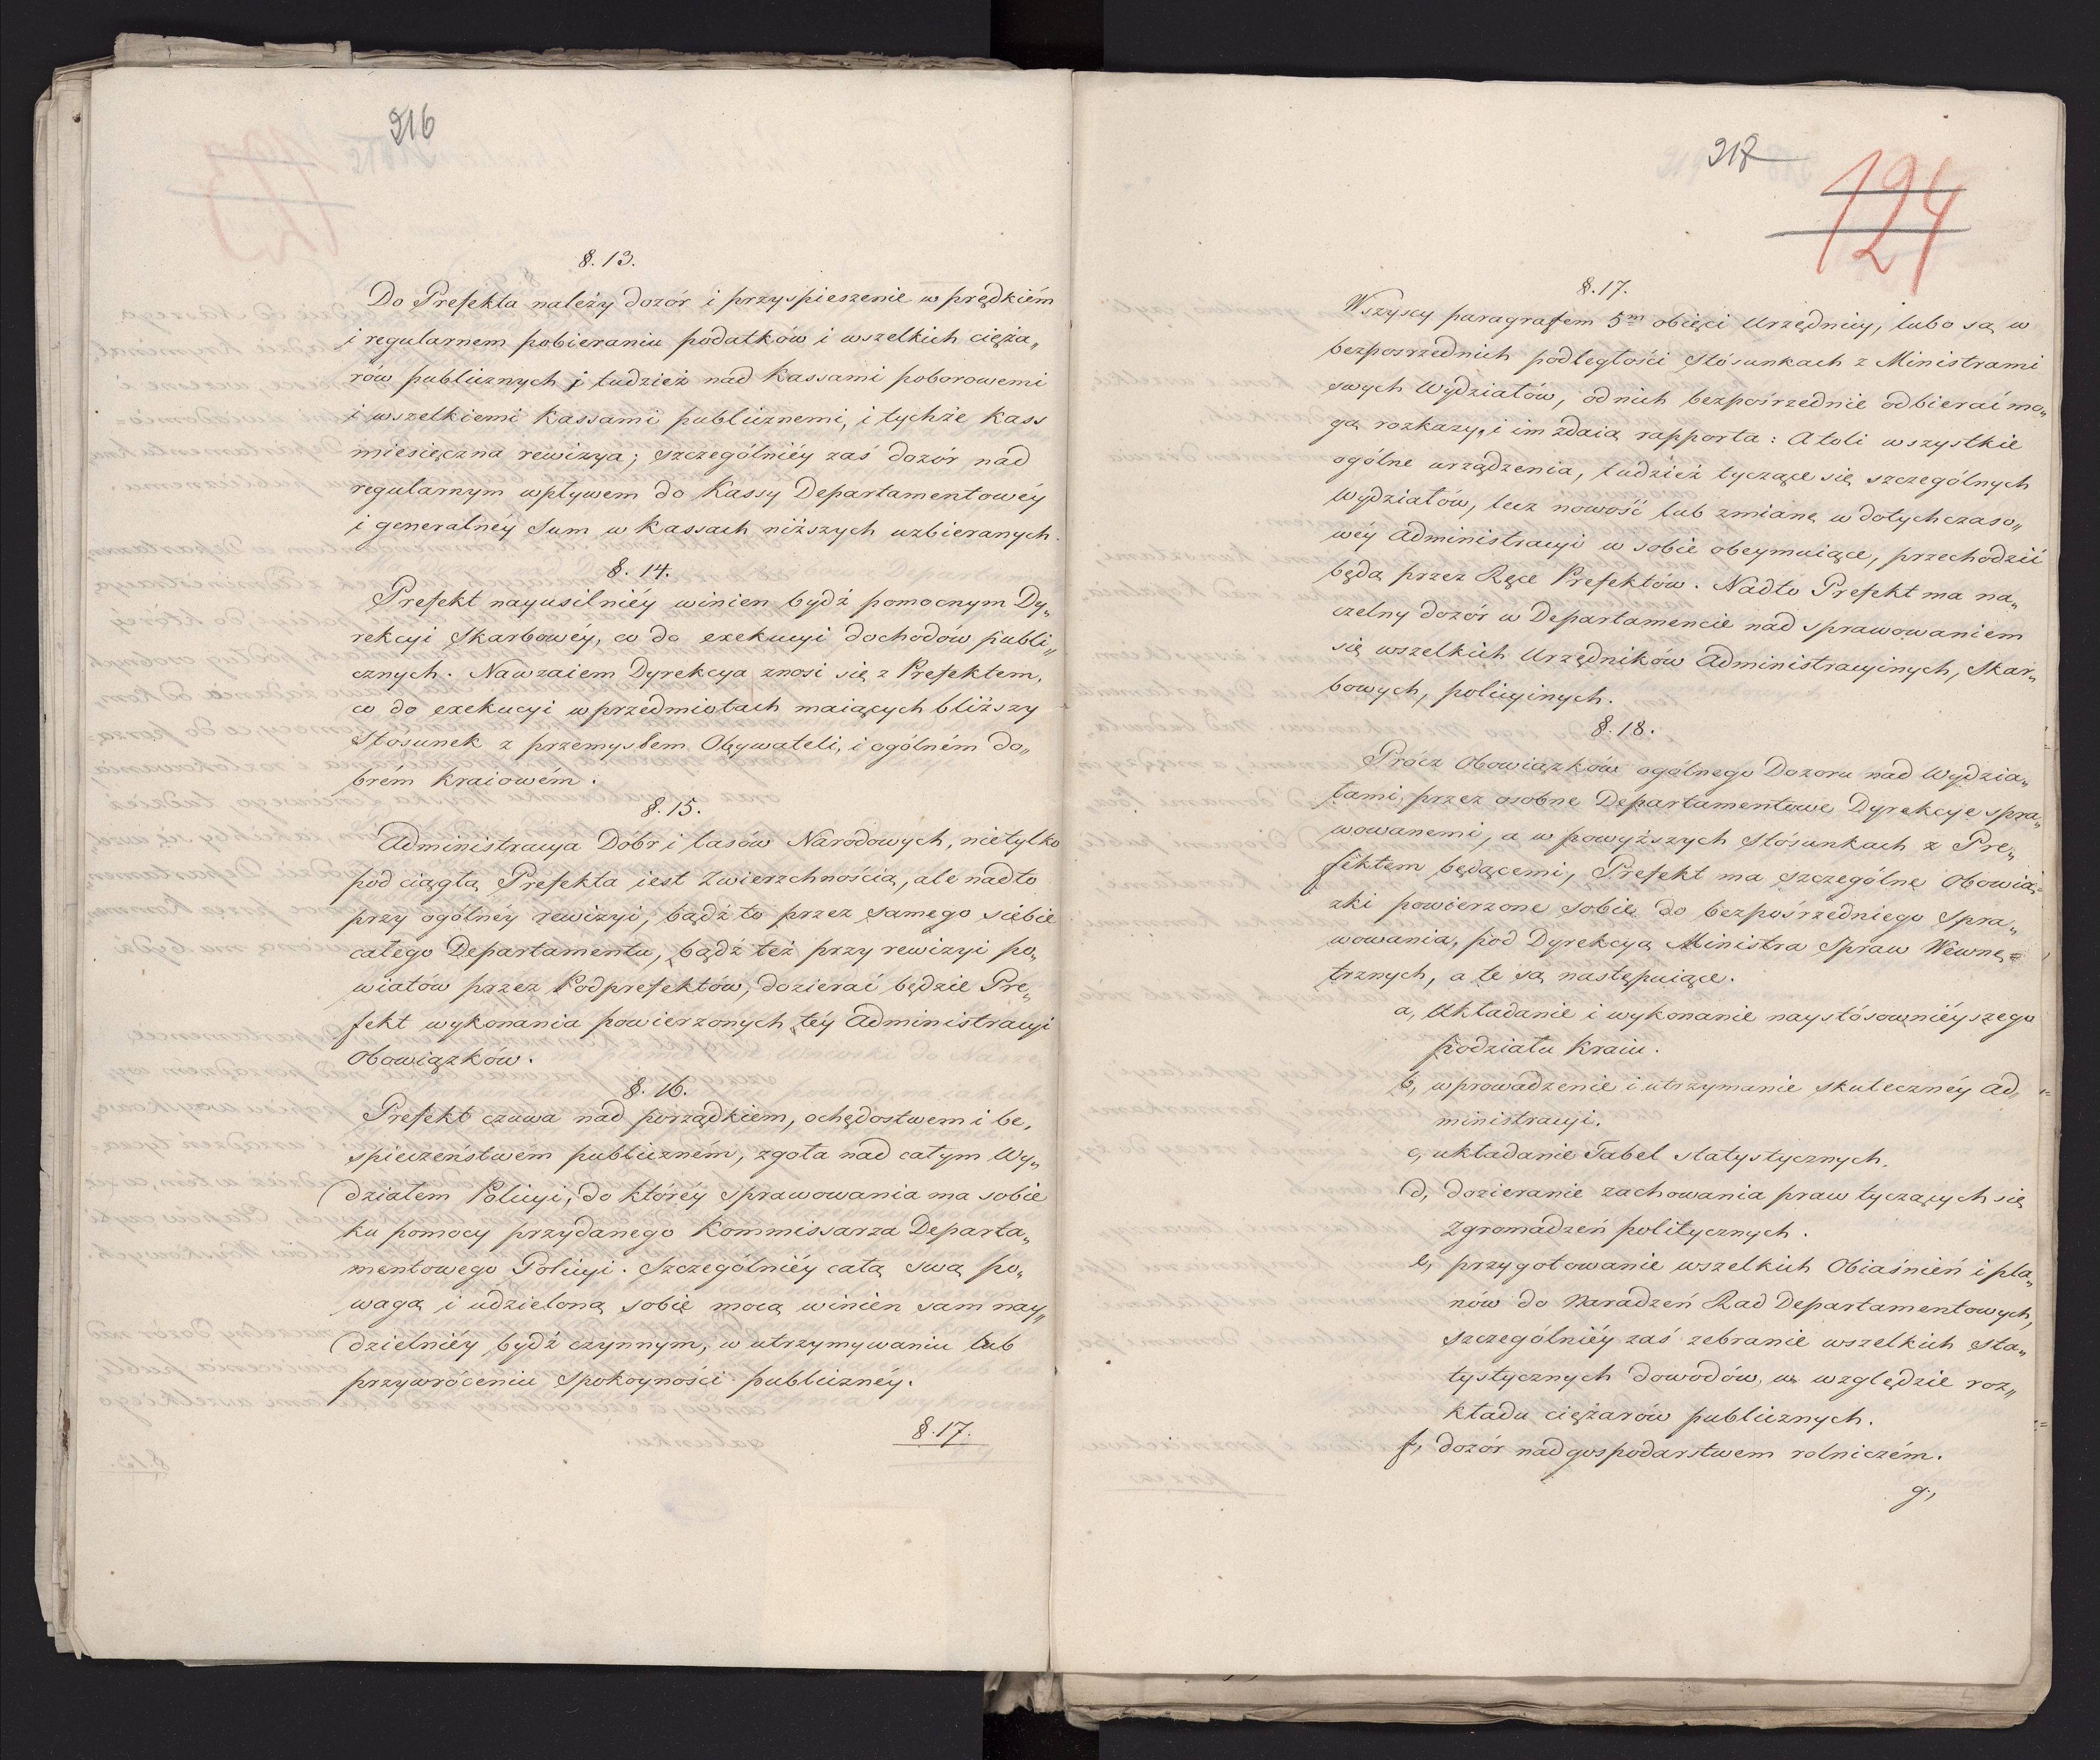 216
§. 13.
Do Prefekta należy dozór i przyspieszenie w prędkiém
i regularnem pobieraniu podatków i wszelkich cięża„
rów publicznych i tudzież nad Kassami poborowemi
i wszelkiemi Kassami publicznemi, i tychże Kass
miesięczna rewizya; szczególniéy zaś dozór nad
regularnym wpływem do Kassy Departamentowéy
i generalnéy Sum w Kassach niższych uzbieranych.
§. 14.
Prefekt nayusilniéy winien bydź pomocnym Dy„
rekcyi Skarbowéy, co do exekucyi dochodów publi„
cznych. Nawzaiem Dyrekcya znosi się z Prefektem,
co do exekucyi w przedmiotach maiących bliższy
Stosunek z przemysłem Obywateli, i ogólném do„
brém Kraiowém.
§. 15.
Administracya Dóbr i lasów Narodowych, nietylko
pod ciągłą Prefekta iest Zwierzchnością, ale nadto
przy ogólnéy rewizyi, bądź to przez samego siebie
całego Departamentu, bądź też przy rewizyi po„
wiatów przez Podprefektów, dozierać będzie Pre„
fekt wykonania powierzonych téy Administracyi
Obowiązków.
§. 16.
Prefekt czuwa nad porządkiem, ochędostwem i be„
spieczeństwem publiczném, zgoła nad całym Wy„
działem Policyi, do któréy sprawowania ma sobie
ku pomocy przydanego Kommissarza Departa„
mentowego Policyi. Szczególniéy całą swą po„
wagą i udzieloną sobie mocą winien sam nay„
dzielniéy bydź czynnym, w utrzymywaniu lub
przywróceniu Spokoyności publicznéy.
§. 17.
217
124
§. 17.
Wszyscy paragrafem 5m obięci Urzędnicy, lubo są w
bezpośrzednich podległości Stósunkach z Ministrami
swych Wydziałów, od nich bezpośrzednie odbierać mo„
gą rozkazy, i im zdaią rapporta: Atoli wszystkie
ogólne urządzenia, tudzież tyczące się szczególnych
Wydziałów, lecz nowość lub zmianę w dotychczaso„
wéy Administracyi w sobie obeymuiące, przechodzić
będą przez Ręce Prefektów. Nadto Prefekt ma na„
czelny dozór w Departamencie nad sprawowaniem
się wszelkich Urzędników Administracyinych, Skar„
bowych, policyinych.
§. 18.
Prócz Obowiązków ogólnego Dozoru nad Wydzia„
łami, przez osobne Departamentowe Dyrekcye spra„
wowanemi, a w powyższych Stósunkach z Pre„
fektem będącemi, Prefekt ma szczególne Obowią„
zki powierzone sobie do bezpośrzedniego Spra„
wowania, pod Dyrekcyą Ministra Spraw Wewnę=
trznych, a te są następuiące.
a, Układanie i wykonanie naystósowniéyszego
podziału Kraiu.
b, wprowadzenie i utrzymanie skutecznéy Ad„
ministracyi.
c, układanie Tabel statystycznych.
d, dozieranie zachowania praw tyczących się
Zgromadzeń politycznych.
e, przygotowanie wszelkich Obiaśnień i pla„
nów do Naradzeń Rad Departamentowych,
szczególniéy zaś zebranie wszelkich sta„
tystycznych dowodów, w względzie roz„
kładu ciężarów publicznych.
f, dozór nad gospodarstwem rolniczém.
g,